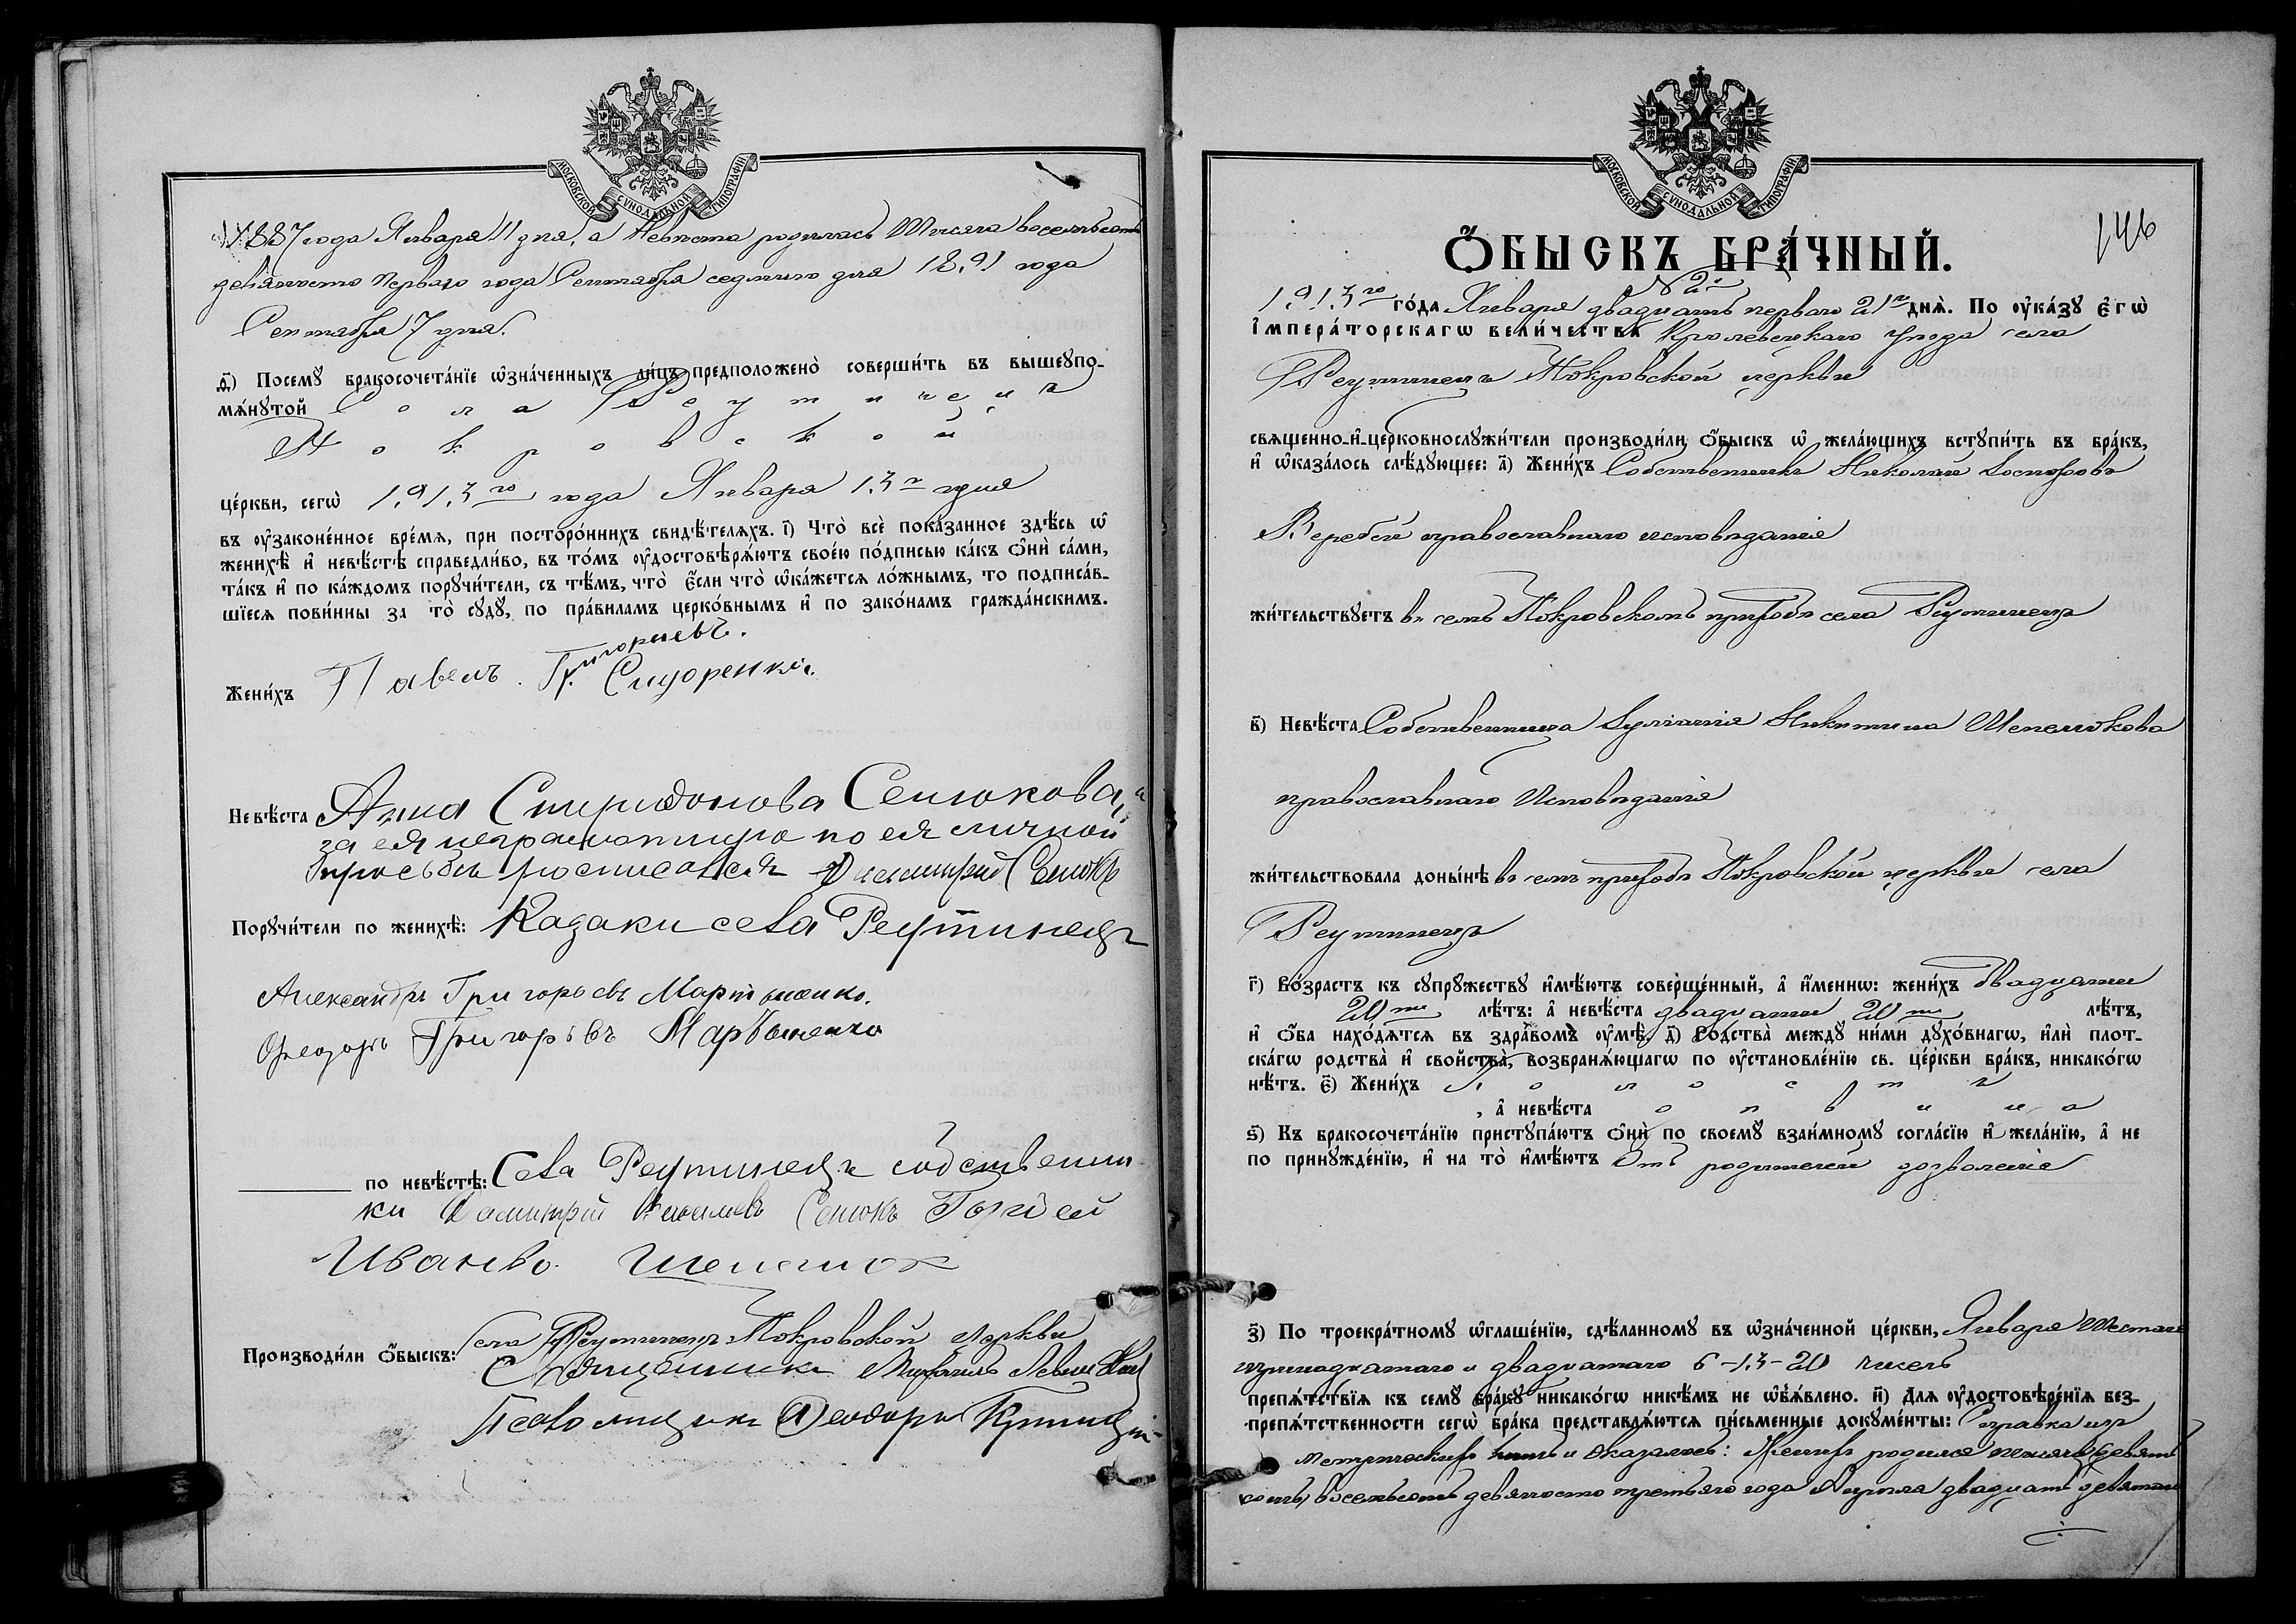 МОСКОВСКОЙ СУНОДАЛЬНОЙ ТИПОГРАФІИ
1887 года Января 11 дня, а Невѣста родилась Тысяча восемьсотъ
девяносто перваго года Сентября седьмого дня 1891 года
Сентября 7 дня.
д҃) Посемꙋ бракосочета́нїе ѡ҆зна́ченныхъ ли́цъ предположено̀ соверши́ть въ вышеꙋпо-
мѧ́нꙋтой Села Реутинецъ
Покровской
це́ркви, сегѡ̀ 1913го года Января 13го дня
въ ᲂу҆законе́нное вре́мѧ, при посторо́ннихъ свидѣ́телѧхъ. і҃) Что̀ всѐ пока́занное здѣ́сь ѡ҆
женихѣ̀ и҆ невѣ́стѣ справедли́во, въ то́мъ ᲂу҆достовѣрѧ́ютъ свое́ю по́дписью ка́къ ѻ҆нѝ са́ми,
та́къ и҆ по ка́ждомъ порꙋчи́тели, съ тѣ́мъ, что̀ є҆́сли что̀ ѡ҆ка́жетсѧ ло́жнымъ, то подписа́в-
шїесѧ пови́нны за то̀ сꙋдꙋ̀, по пра́виламъ церко́внымъ и҆ по зако́намъ гражда́нскимъ.
Жени́хъ Павелъ Григорьевъ. Сидоренко.
Невѣ́ста Анна Спиридонова Сенюкова, а
за ея неграмотную по ея личной
просьбѣ росписался Димитрій Сенюкъ
Порꙋчи́тели по женихѣ̀: Казаки села Реутинецъ
Александръ Григорьевъ Мартыненко.
Ѳеодоръ Григорьевъ Мартыненко
по невѣ́стѣ: Села Реутинецъ собственни-
ки Димитрій Сенюкъ Гордей
Иванов. Шепелюк
Производи́ли ѻ҆́быскъ: Села Реутинецъ Покровской Церкви
Священникъ Михаилъ
Псаломщикъ Ѳеодоръ
МОСКОВСКОЙ СУНОДАЛЬНОЙ ТИПОГРАФІИ
146
Ѻ҆́БЫСКЪ БРА́ЧНЫЙ.
№ 2й
1913го го́да Января двадцать перваго 21го днѧ̀. По ᲂу҆ка́зꙋ Є҆гѡ̀
І҆мпера́торскагѡ вели́чества Кролевецкаго уѣзда села
Реутинецъ Покровской церкви
свѧщенно-и҆-церковнослꙋжи́тели производи́ли ѻ҆́быскъ ѡ҆ жела́ющихъ встꙋпи́ть въ бра́къ,
и҆ ѡ҆каза́лось слѣ́дꙋющее: а҃) Жени́хъ Собственникъ Николай Іосифовъ
Веребей православнаго исповѣданія
жи́тельствꙋетъ въ семъ Покровскомъ приходѣ села Реутинецъ
в҃) Невѣ́ста Собственница Іуліанія Никитина Шепелюкова
православнаго Исповѣданія
жи́тельствовала доны́нѣ въ семъ приходѣ Покровской церкви села
Реутинецъ
г҃) Во́зрастъ къ сꙋпрꙋ́жествꙋ и҆мѣ́ютъ соверше́нный, а҆ и҆́менно: жени́хъ двадцати
20ти лѣ́тъ: а҆ невѣ́ста двадцати 20ти лѣ́тъ,
и҆ ѻ҆́ба нахо́дѧтсѧ въ здра́вомъ ᲂу҆мѣ̀. д҃) Родства̀ междꙋ ни́ми дꙋхо́внагѡ, и҆лѝ плот-
ска́гѡ родства̀ и҆ сво́йства, возбранѧ́ющагѡ по ᲂу҆становле́нїю св. це́ркви бра́къ, никако́гѡ
нѣ́тъ. є҃) Жени́хъ холостъ
, а҆ невѣ́ста дѣвица
ѕ҃) Къ бракосочета́нїю пристꙋпа́ютъ ѻ҆нѝ по своемꙋ̀ взаи́мномꙋ согла́сїю и҆ жела́нїю, а҆ не
по принꙋжде́нїю, и҆ на то̀ и҆мѣ́ютъ Отъ родителей дозволеніе
з҃) По троекра́тномꙋ ѡ҆глаше́нїю, сдѣ́ланномꙋ въ ѡ҆зна́ченной це́ркви, Января Шестаго
тринадцатаго и двадцатаго 6-13-20 чиселъ
препѧ́тствїѧ къ семꙋ̀ бра́кꙋ никако́гѡ никѣ́мъ не ѡ҆б̾ѧ́влено. и҃) Длѧ ᲂу҆достовѣре́нїѧ без-
препѧ́тственности сегѡ̀ бра́ка представлѧ́ютсѧ пи́сьменные докꙋме́нты: Справка изъ
метрическихъ книгъ и Оказалось: Женихъ родился тысяча девять
сотъ восемьсотъ девяносто третьяго года Апрѣля двадцать девятаго